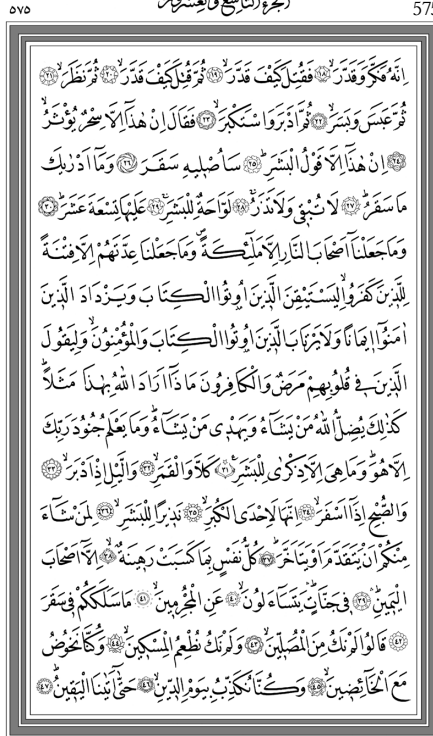 ٥٧٥ الجزء التاسع والعشرون 575
اِنَّهُ فَكَّرَ وَقَدَّرَۙ ﴿١٨﴾ فَقُتِلَ كَيْفَ قَدَّرَۙ ﴿١٩﴾ ثُمَّ قُتِلَ كَيْفَ قَدَّرَۙ ﴿٢٠﴾ ثُمَّ نَظَرَۙ ﴿٢١﴾
ثُمَّ عَبَسَ وَبَسَرَۙ ﴿٢٢﴾ ثُمَّ اَدْبَرَ وَاسْتَكْبَرَۙ ﴿٢٣﴾ فَقَالَ اِنْ هٰذَٓا اِلَّا سِحْرٌ يُؤْثَرُۙ
﴿٢٤﴾ اِنْ هٰذَٓا اِلَّا قَوْلُ الْبَشَرِۜ ﴿٢٥﴾ سَاُصْل۪يهِ سَقَرَ ﴿٢٦﴾ وَمَٓا اَدْرٰيكَ
مَا سَقَرُۜ ﴿٢٧﴾ لَا تُبْق۪ي وَلَا تَذَرُۚ ﴿٢٨﴾ لَوَّاحَةٌ لِلْبَشَرِۚ ﴿٢٩﴾ عَلَيْهَا تِسْعَةَ عَشَرَۜ ﴿٣٠﴾
وَمَا جَعَلْنَٓا اَصْحَابَ النَّارِ اِلَّا مَلٰٓئِكَةًۖ وَمَا جَعَلْنَا عِدَّتَهُمْ اِلَّا فِتْنَةً
لِلَّذ۪ينَ كَفَرُواۙ لِيَسْتَيْقِنَ الَّذ۪ينَ اُو۫تُوا الْكِتَابَ وَيَزْدَادَ الَّذ۪ينَ
اٰمَنُٓوا ا۪يمَانًا وَلَا يَرْتَابَ الَّذ۪ينَ اُو۫تُوا الْكِتَابَ وَالْمُؤْمِنُونَۙ وَلِيَقُولَ
الَّذ۪ينَ ف۪ي قُلُوبِهِمْ مَرَضٌ وَالْكَافِرُونَ مَاذَٓا اَرَادَ اللّٰهُ بِهٰذَا مَثَلًاۜ
كَذٰلِكَ يُضِلُّ اللّٰهُ مَنْ يَشَٓاءُ وَيَهْد۪ي مَنْ يَشَٓاءُۜ وَمَا يَعْلَمُ جُنُودَ رَبِّكَ
اِلَّا هُوَۜ وَمَا هِيَ اِلَّا ذِكْرٰى لِلْبَشَرِ۟ ﴿٣١﴾ كَلَّا وَالْقَمَرِۙ ﴿٣٢﴾ وَالَّيْلِ اِذْ اَدْبَرَۙ ﴿٣٣﴾
وَالصُّبْحِ اِذَٓا اَسْفَرَۙ ﴿٣٤﴾ اِنَّهَا لَاِحْدَى الْكُبَرِۙ ﴿٣٥﴾ نَذ۪يرًا لِلْبَشَرِۙ ﴿٣٦﴾ لِمَنْ شَٓاءَ
مِنْكُمْ اَنْ يَتَقَدَّمَ اَوْ يَتَاَخَّرَۜ ﴿٣٧﴾ كُلُّ نَفْسٍ بِمَا كَسَبَتْ رَه۪ينَةٌۙ ﴿٣٨﴾ اِلَّٓا اَصْحَابَ
الْيَم۪ينِۜۛ ﴿٣٩﴾ ف۪ي جَنَّاتٍۜۛ يَتَسَٓاءَلُونَۙ ﴿٤٠﴾ عَنِ الْمُجْرِم۪ينَۙ ﴿٤١﴾ مَا سَلَكَكُمْ ف۪ي سَقَرَ
﴿٤٢﴾ قَالُوا لَمْ نَكُ مِنَ الْمُصَلّ۪ينَۙ ﴿٤٣﴾ وَلَمْ نَكُ نُطْعِمُ الْمِسْك۪ينَۙ ﴿٤٤﴾ وَكُنَّا نَخُوضُ
مَعَ الْخَٓائِض۪ينَۙ ﴿٤٥﴾ وَكُنَّا نُكَذِّبُ بِيَوْمِ الدّ۪ينِۙ ﴿٤٦﴾ حَتّٰٓى اَتٰينَا الْيَق۪ينُۜ ﴿٤٧﴾